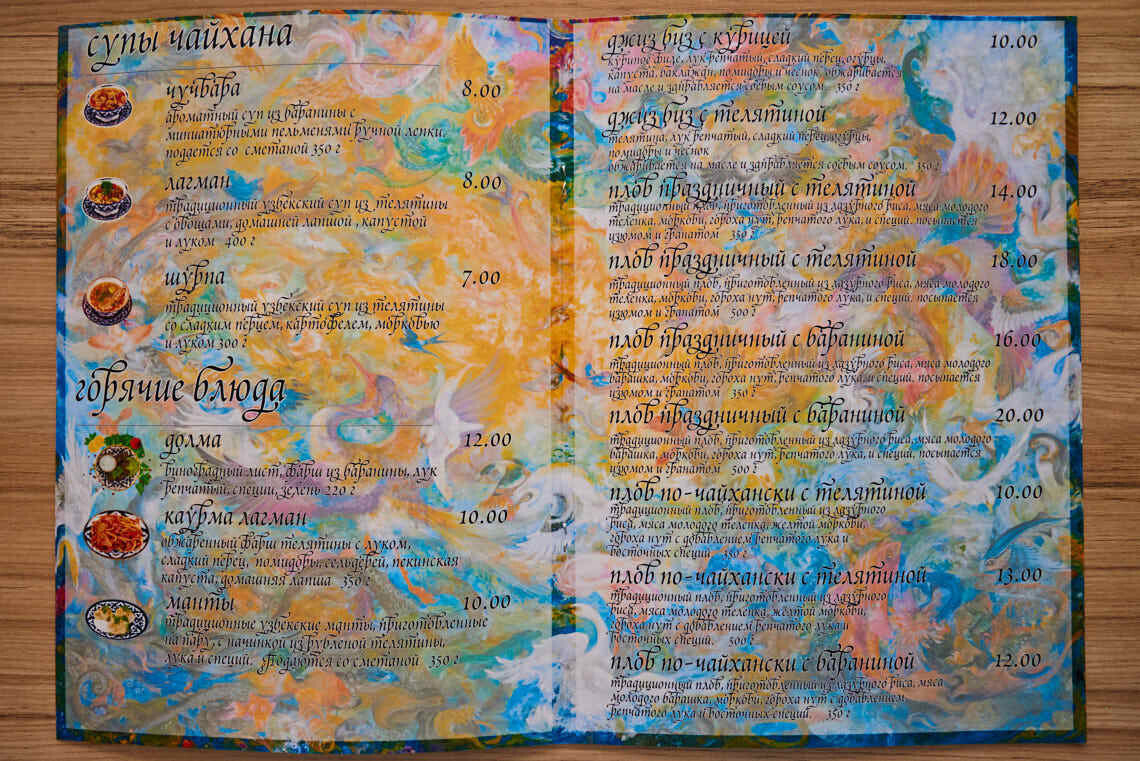 супы чайхана
чучвара 8.00
ароматный суп из баранины с
миниатюрными пельменями ручной лепки.
подается со сметаной 350 г
лагман 8.00
традиционный узбекский суп из телятины
с овощами, домашней лапшой , капустой
и луком 400 г
шурпа 7.00
традиционный узбекский суп из телятины
со сладким перцем, картофелем, морковью
и луком 300 г
горячие блюда
долма 12.00
виноградный лист, фарш из баранины, лук
репчатый, специи, зелень 220 г
каурма лагман 10.00
обжаренный фарш телятины с луком,
сладкий перец, помидоры, сельдерей, пекинская
капуста, домашняя лапша 350 г
манты 10.00
традиционные узбекские манты, приготовленные
на пару , с начинкой из рубленой телятины,
лука и специй. Подаются со сметаной 350 г
джиз биз с курицей 10.00
куриное филе, лук репчатый, сладкий перец, огурцы,
капуста, баклажан, помидоры и чеснок, обжаривается
на масле и заправляется соевым соусом 350 г
джиз биз с телятиной 12.00
телятина, лук репчатый, сладкий перец, огурцы,
помидоры и чеснок
обжаривается на масле и заправляется соевым соусом. 350 г
плов праздничный с телятиной 14.00
традиционный плов, приготовленный из лазурного риса, мяса молодого
теленка, моркови, гороха нут, репчатого лука, и специй. посыпается
изюмом и гранатом 350 г
плов праздничный с телятиной 18.00
традиционный плов, приготовленный из лазурного риса, мяса молодого
теленка, моркови, гороха нут, репчатого лука, и специй. посыпается
изюмом и гранатом 500 г
плов праздничный с бараниной 16.00
традиционный плов, приготовленный из лазурного риса, мяса молодого
барашка, моркови, гороха нут, репчатого лука и специй. посыпается
изюмом и гранатом 350 г
плов праздничный с бараниной 20.00
традиционный плов, приготовленный из лазурного риса, мяса молодого
барашка, моркови, гороха нут, репчатого лука, и специй. посыпается
изюмом и гранатом 500 г
плов по-чайхански с телятиной 10.00
традиционный плов, приготовленный из лазурного
риса, мяса молодого теленка, желтой моркови,
гороха нут с добавлением репчатого лука и
восточных специй 350 г
плов по-чайхански с телятиной 13.00
традиционный плов, приготовленный из лазурного
риса, мяса молодого теленка, желтой моркови,
гороха нут с добавлением репчатого лука и
восточных специй. 500 г
плов по-чайхански с бараниной 12.00
традиционный плов, приготовленный из лазурного риса, мяса
молодого барашка, моркови, гороха нут с добавлением
репчатого лука и восточных специй. 350 г